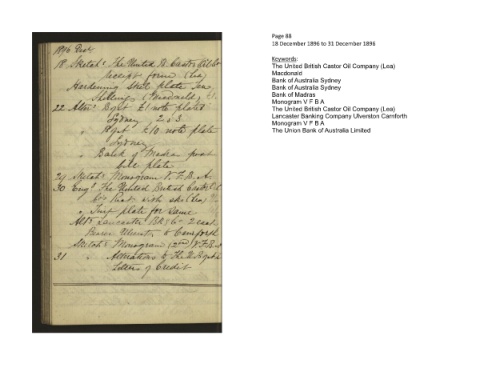 1896 Decr
18 Sketchg The United B. Castor Oil Co
receipt form (Lea)
Hardening steel plate
Shillings (Macdonald)
22 Altrg Bof A £1 note plates
Sydney, 2 & 3
" Bof A £10 note plate
Sydney
" Bank of Madras post
bill plate
29 Sketchg Monogram V.F.B.A.
30 Engg The United British Castor O.
Co's
" plate for same
Altg Lancaster Bkg Co
Ulverston & Carnforth
Sketchg Monogram (2nd) V.F.B.A
31 " Alterations to The U.
Letters of Credit
Page 88
18 December 1896 to 31 December 1896
Keywords:
The United British Castor Oil Company (Lea)
Macdonald
Bank of Australia Sydney
Bank of Australia Sydney
Bank of Madras
Monogram V F B A
The United British Castor Oil Company (Lea)
Lancaster Banking Company Ulverston Carnforth
Monogram V F B A
The Union Bank of Australia Limited